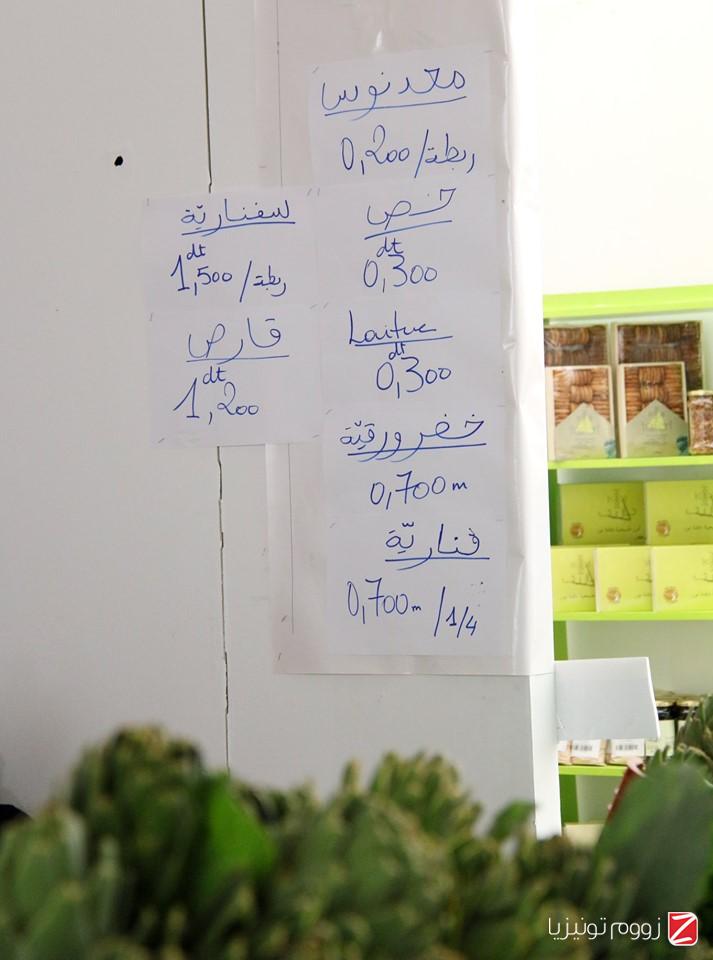 معدنوس
0,200/ربطة
خص
dt
0,300
Laitue
dt
0,300
خضرورقيّة
0,700m
ڨناريّة
0,700m/1/4
السفناريّة
dt
1,500/ربطة
قارص
dt
1,200
زووم تونيزيا